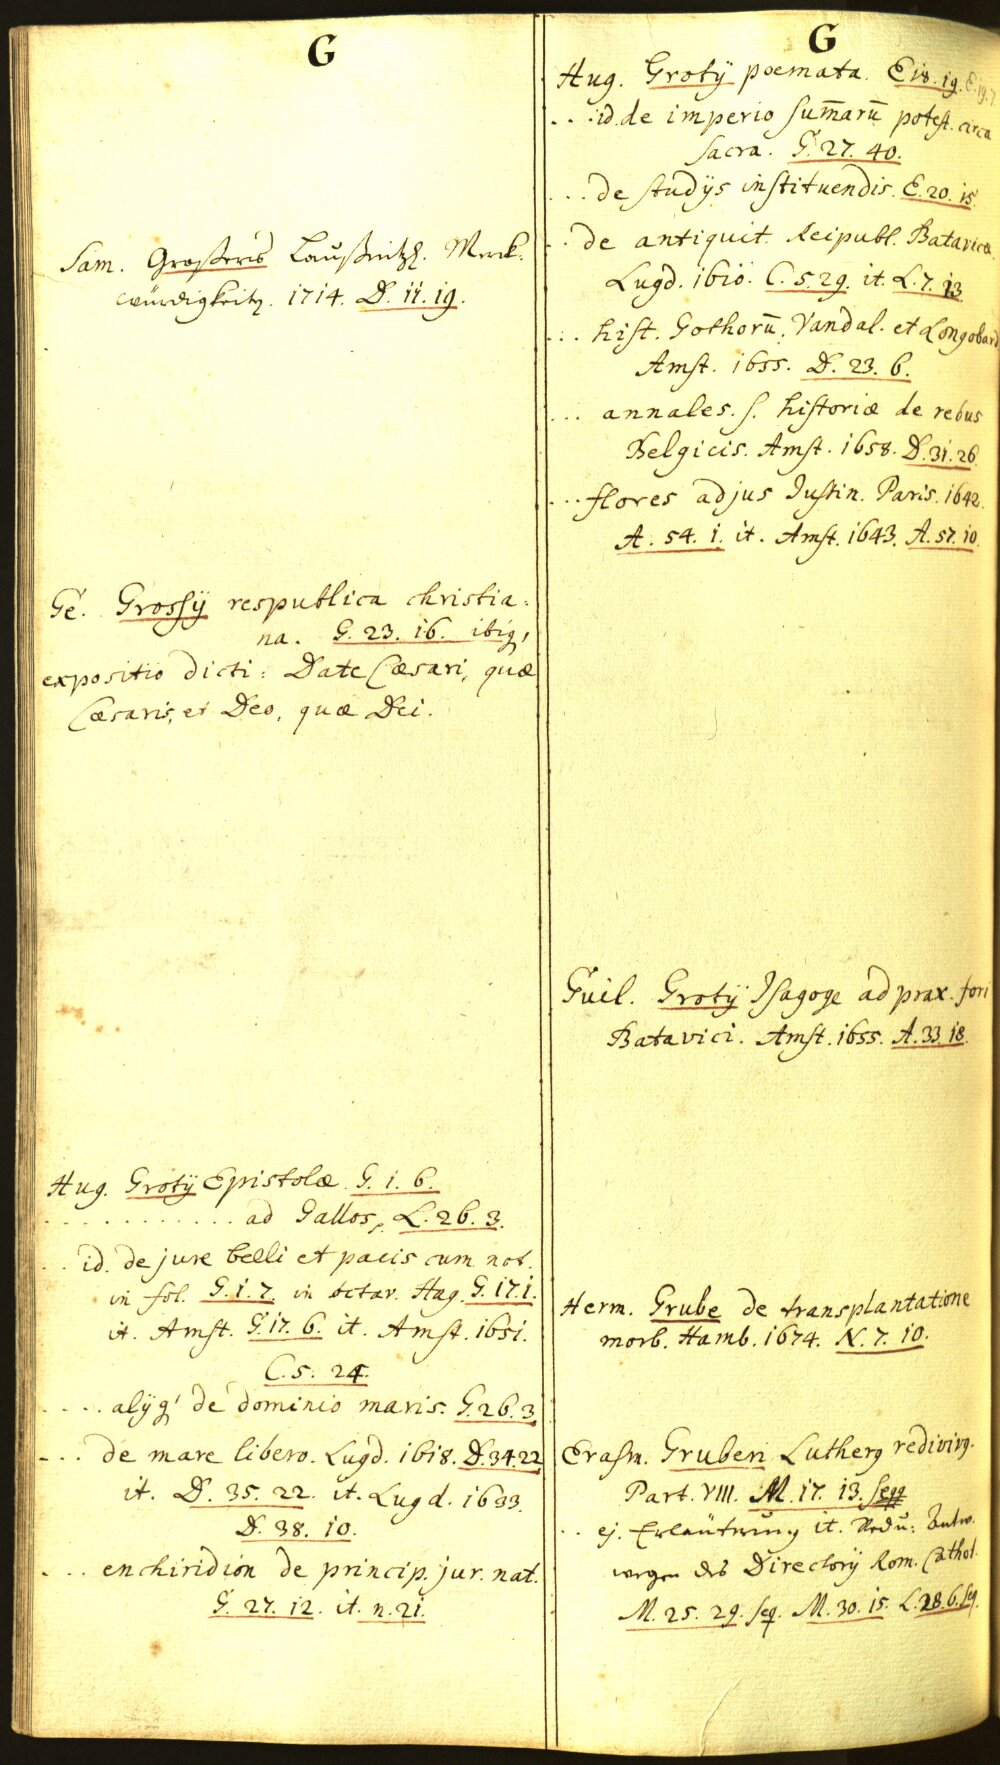 G
Sam. Großeris Laußnitzl. Merk-
würdigkeitn. 1714. D. 11. 19.
Ge. Grossij respublica christia-
na. G. 23. 16. ibiq,
expositio dicti: Date Cæsari, quæ
Cæsaris, et Deo, quæ Dei.
Hug. Grotij Epistolæ G. 1. 6.
. . . . . . . . . . . . ad Gallos, L. 26. 3.
. . id. de jure belli et pacis cum not.
in fol. G. 1. 7. in octav. Hag. G. 17. 1.
it. Amst. G. 17. 6. it. Amst. 1651.
C. 5. 24.
. . . . alijq' de dominio maris. G. 26. 3
. . . de mare libero. Lugd. 1618. D. 34. 22
it. D. 35. 22. it. Lugd. 1633.
D. 38. 10.
. . . enchiridion de princip. jur. nat.
G. 27. 12. it. n. 21.
G
Hug. Grotij poemata. E 18. 19. E. 19. 7
. . . id. de imperio sum̄arū potest. circa
sacra. G. 27. 40.
. . . de studijs instituendis. E. 20. 15
. . de antiquit. Reipubl. Batavicæ.
Lugd. 1610. C. 5. 29. it. L. 7. 13
. . . hist. Gothorū, Vandal. et Longobard
Amst. 1655. D. 23. 6.
. . . annales. s. historiæ de rebus
Belgicis. Amst. 1658. D. 31. 26.
. . . flores ad jus Justin. Paris. 1642.
A. 54. 1. it. Amst. 1643. A. 57. 10.
Guil. Grotij Isagoge ad prax. fori
Batavici. Amst. 1655. A. 33. 18.
Herm. Grube de transplantatione
morb. Hamb. 1674. N. 7. 10.
Erasm. Gruberi Lutherg redivivg.
Part. VIII. M. 17. 13. seqq
. . ej. Erläuterung it. Antw.
wegen des Directorij Rom. Cathol.
M. 25. 29. seq. M. 30. 15. L. 28. 6. seq.